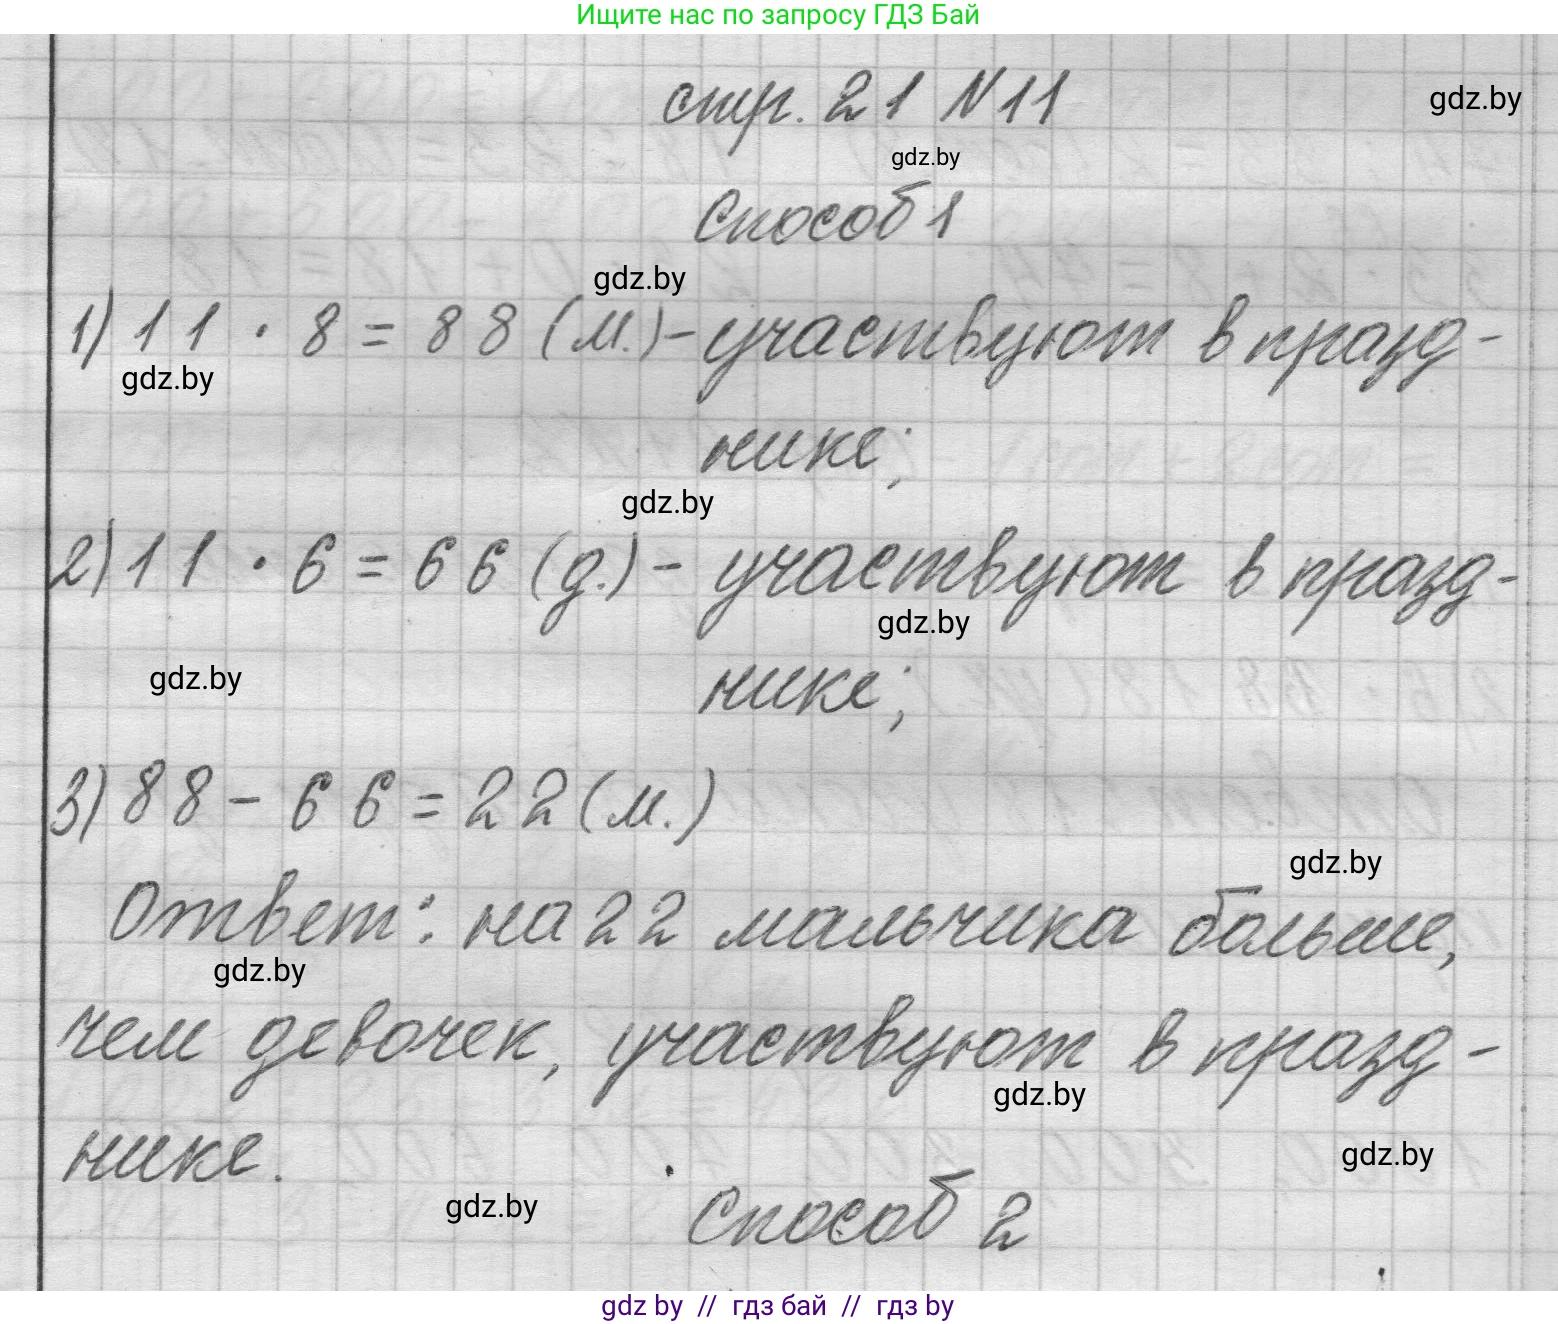 Ищите нас по запросу ГДЗ Бай
стр. 21 N 11
gdz.by
gdz.by
Способ 1
gdz.by
1) 11 · 8 = 88 (м.) - участвуют в празд-
gdz.by
нике;
gdz.by
2) 11 · 6 = 66 (д.) - участвуют в празд-
gdz.by
нике;
gdz.by
3) 88 - 66 = 22 (м.)
gdz.by
Ответ: на 22 мальчика больше,
gdz.by
чем девочек, участвуют в празд-
gdz.by
нике.
gdz.by
gdz.by
Способ 2
gdz by // гдз бай // гдз by